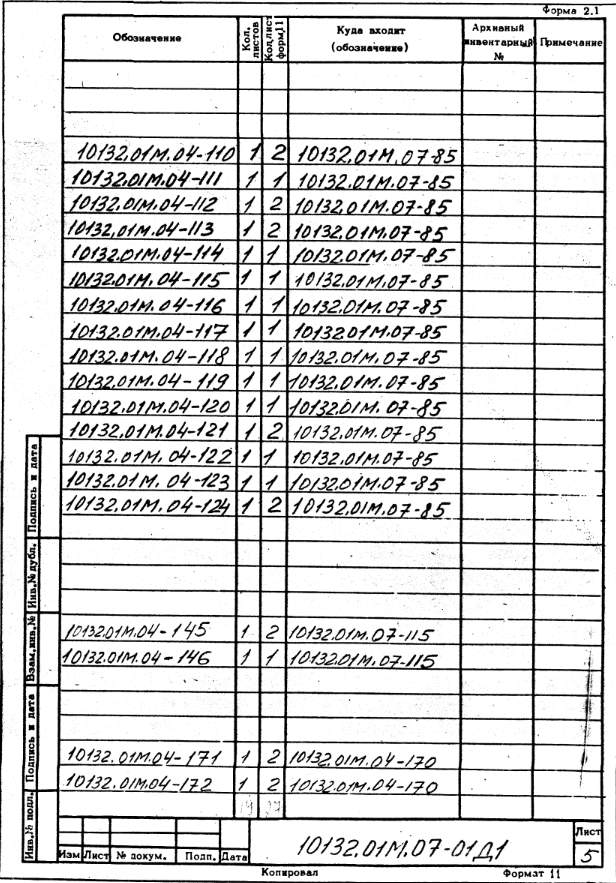 Форма 2.1
Обозначение Кол. листов Кол. лист форм. 11 Куда входит (обозначение) Архивный инвентарный № Примечание
10132.01М.04-110 1 2 10132.01М.07-85
10132.01М.04-111 1 1 10132.01М.07-85
10132.01М.04-112 1 2 10132.01М.07-85
10132.01М.04-113 1 2 10132.01М.07-85
10132.01М.04-114 1 1 10132.01М.07-85
10132.01М.04-115 1 1 10132.01М.07-85
10132.01М.04-116 1 1 10132.01М.07-85
10132.01М.04-117 1 1 10132.01М.07-85
10132.01М.04-118 1 1 10132.01М.07-85
10132.01М.04-119 1 1 10132.01М.07-85
10132.01М.04-120 1 1 10132.01М.07-85
10132.01М.04-121 1 2 10132.01М.07-85
10132.01М.04-122 1 1 10132.01М.07-85
10132.01М.04-123 1 1 10132.01М.07-85
10132.01М.04-124 1 2 10132.01М.07-85
10132.01М.04-145 1 2 10132.01М.07-115
10132.01М.04-146 1 1 10132.01М.07-115
10132.01М.04-171 1 2 10132.01М.04-170
10132.01М.04-172 1 2 10132.01М.04-170
Подпись и дата
Инв.№ дубл.
Взам.инв.№
Подпись и дата
Инв.№ подл.
Изм Лист № докум. Подп. Дата
10132.01М.07-01Д1
Лист
5
Копировал Формат 11